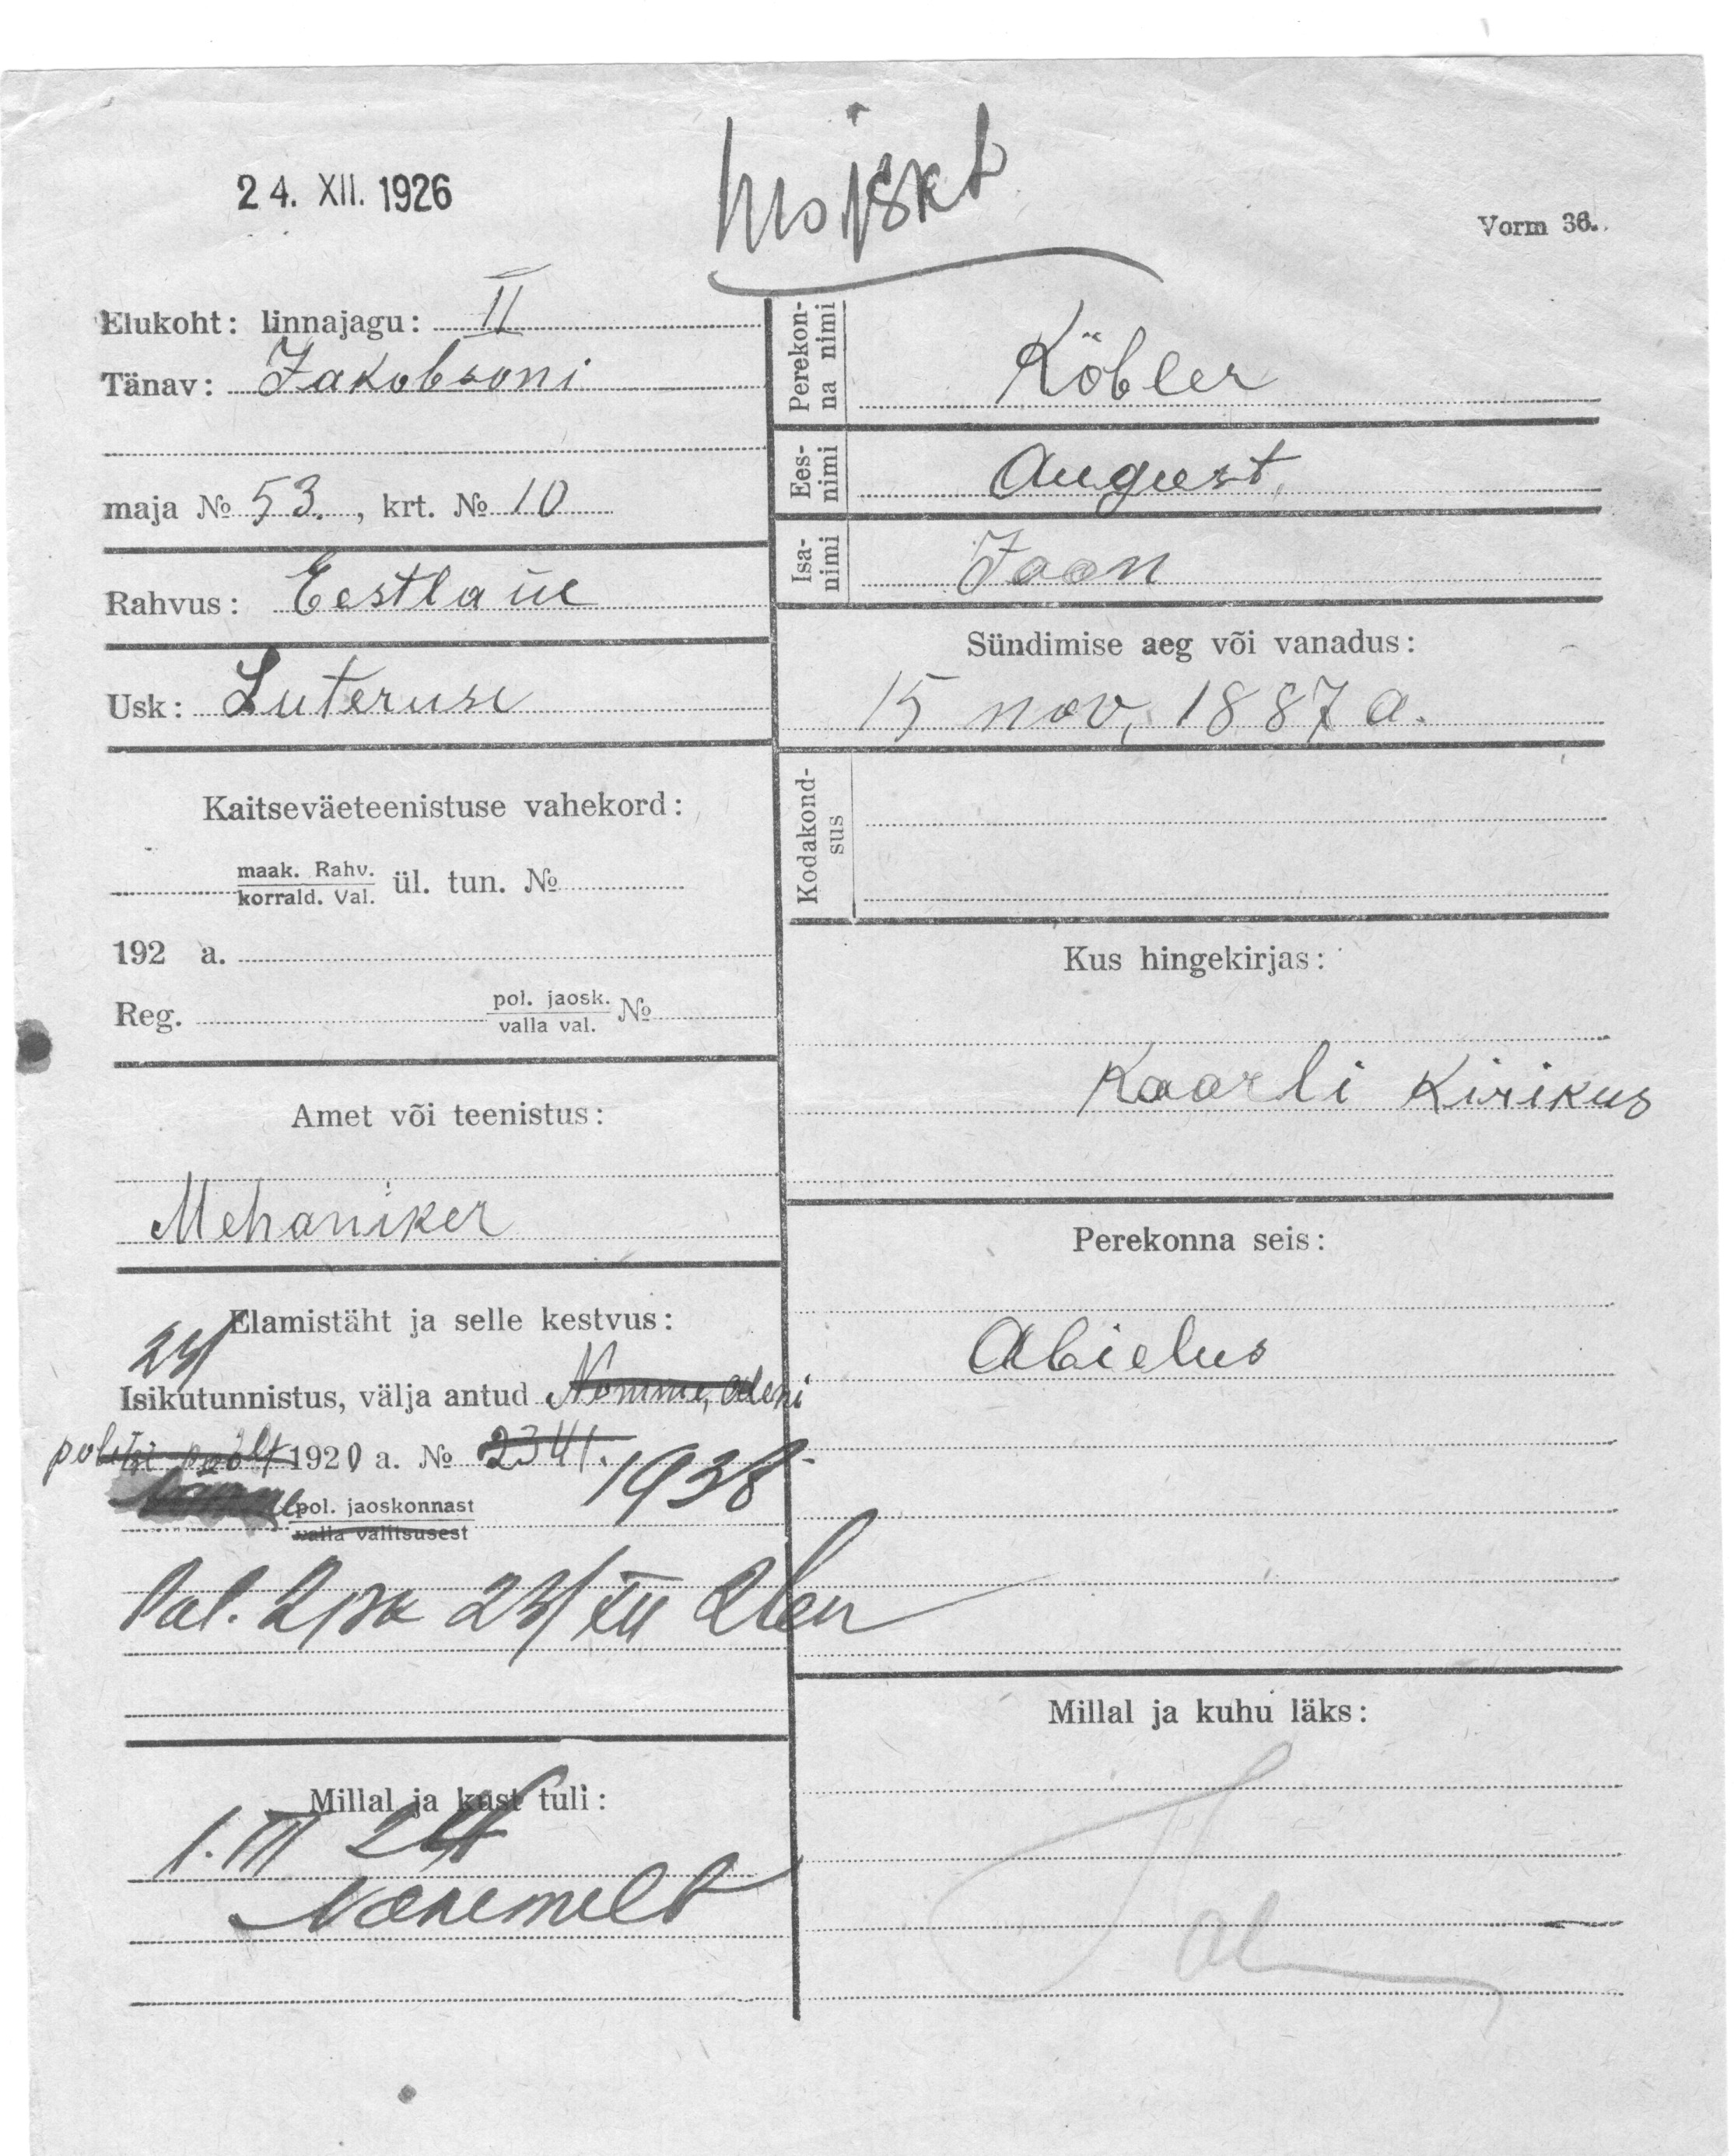 24. XII. 1926
Vorm 36.
Elukoht: linnajagu: II
Tänav: Jakobsoni
maja № 53., krt. № 10
Rahvus: Eestlane
Usk: Luteruse
Kaitseväeteenistuse vahekord:
maak. Rahv.
korrald. Val. ül. tun. №
192 a.
Reg. pol. jaosk. №
valla val.
Amet või teenistus:
Mehaniker
Elamistäht ja selle kestvus:
Isikutunnistus, välja antud Nõmme,
politsei poolt 1920 a. № 2341.
1938
pol. jaoskonnast
valla valitsusest
Millal ja kust tuli:
1. III 24
Perekonna nimi
Köbler
Eesnimi
August
Isanimi
Jaan
Sündimise aeg või vanadus:
15 nov. 1887 a.
Kodakondsus
Kus hingekirjas:
Kaarli Kirikus
Perekonna seis:
Abielus
Millal ja kuhu läks: